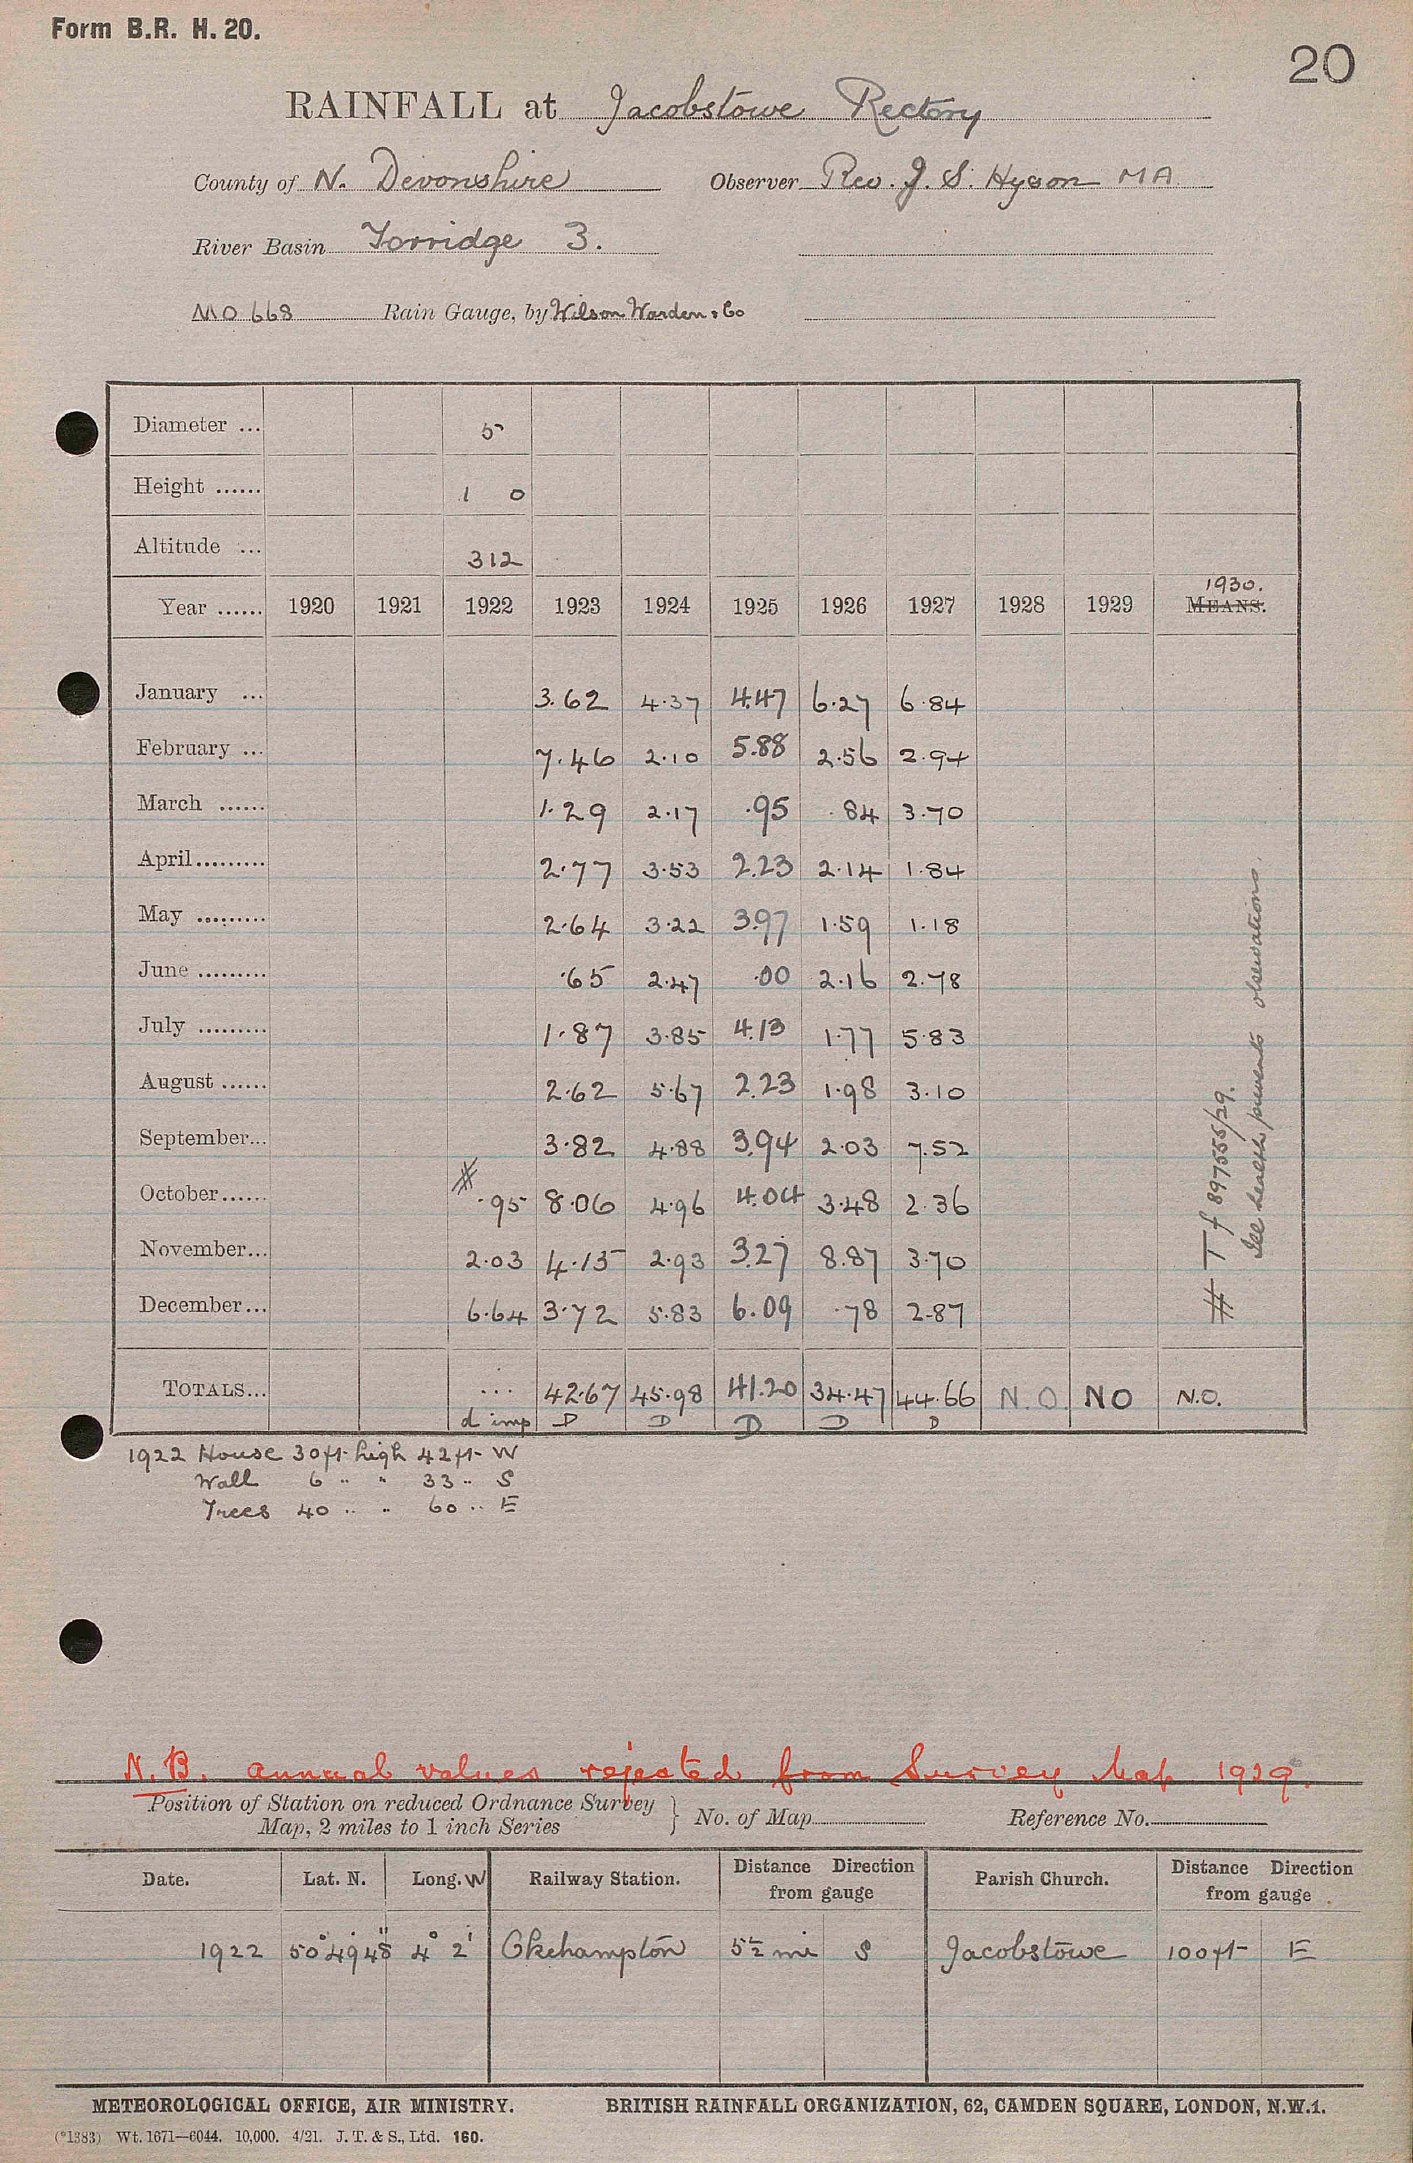 Form B.R. H. 20.
20
RAINFALL at Jacobstowe Rectory
County of N. Devonshire Observer Rev. J. S. Hyson MA
River Basin Torridge 3.
MO 668 Rain Gauge, by Wilson Warden & Co
Diameter ... 5
Height ...... 1 0
Altitude ... 312
1930.
Year ...... 1920 1921 1922 1923 1924 1925 1926 1927 1928 1929 MEANS.
January ... 3.62 4.37 4.47 6.27 6.84
February ... 7.46 2.10 5.88 2.56 2.94
March ...... 1.29 2.17 .95 .84 3.70
April......... 2.77 3.53 2.23 2.14 1.84
May ......... 2.64 3.22 3.97 1.59 1.18
June ......... .65 2.47 .00 2.16 2.78
July ......... 1.87 3.85 4.13 1.77 5.83
August ...... 2.62 5.67 2.23 1.98 3.10
September... 3.82 4.88 3.94 2.03 7.52
October...... # .95 8.06 4.96 4.04 3.48 2.36
November... 2.03 4.15 2.93 3.27 8.87 3.70
December... 6.64 3.72 5.83 6.09 .78 2.87
TOTALS... ... 42.67 45.98 41.20 34.47 44.66 N.O. NO N.O.
d imp D D D D D
# T f 897555/29.
Ill health prevents observations.
1922 House 30ft high 42ft W
Wall 6 " " 33 " S
Trees 40 " " 60 " E
N.B. annual values rejected from Survey Map 1929.
Position of Station on reduced Ordnance Survey
Map, 2 miles to 1 inch Series } No. of Map Reference No.
Date. Lat. N. Long. W Railway Station. Distance Direction from gauge Parish Church. Distance Direction from gauge
1922 50° 49' 48" 4° 2' Okehampton 5½ mi S Jacobstowe 100 ft E
METEOROLOGICAL OFFICE, AIR MINISTRY. BRITISH RAINFALL ORGANIZATION, 62, CAMDEN SQUARE, LONDON, N.W.1.
(*1383) Wt. 1671—6044. 10,000. 4/21. J. T. & S., Ltd. 160.